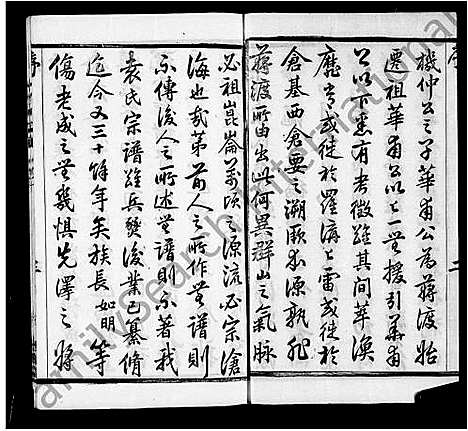 機仲公之子華甫公為蔣渡始
遷祖華甫公以上一無援引華甫
公以下悉有考徵雖其間華渙
歷亨或徙於羅溝上雷或徙於
倉基西倉要之溯厥本源孰非
蔣渡所由出此何異群山之氣脉
必祖崑崙萬頃之源流必宗滄
海也哉第前人之所作無譜則
不傳後人之所述無譜則不著我
袁氏宗譜雖兵燹後業已纂脩
迄今又三十餘年矣族長如明等
傷老成之無幾懼先澤之將
序
二
序
familysearch international